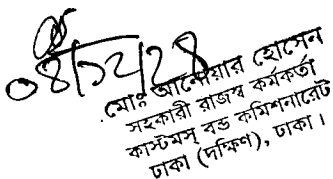 ০৪/১২/২৪
মোঃ আনোয়ার হোসেন
সহকারী রাজস্ব কর্মকর্তা
কাস্টমস্ বন্ড কমিশনারেট
ঢাকা (দক্ষিণ), ঢাকা।